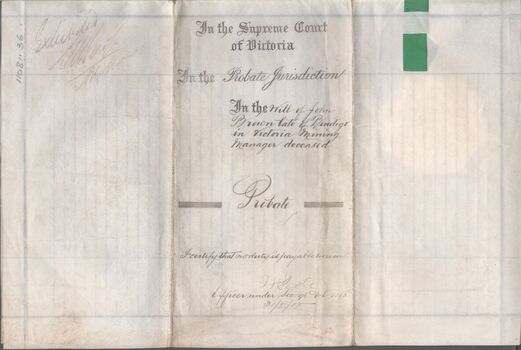 11081.36
In the Supreme Court
of Victoria
In the Probate Jurisdiction
In the Will of John
Brown late of Bendigo
in Victoria Mining
Manager deceased
Probate
I certify that no duty is payable hereon
Officer under